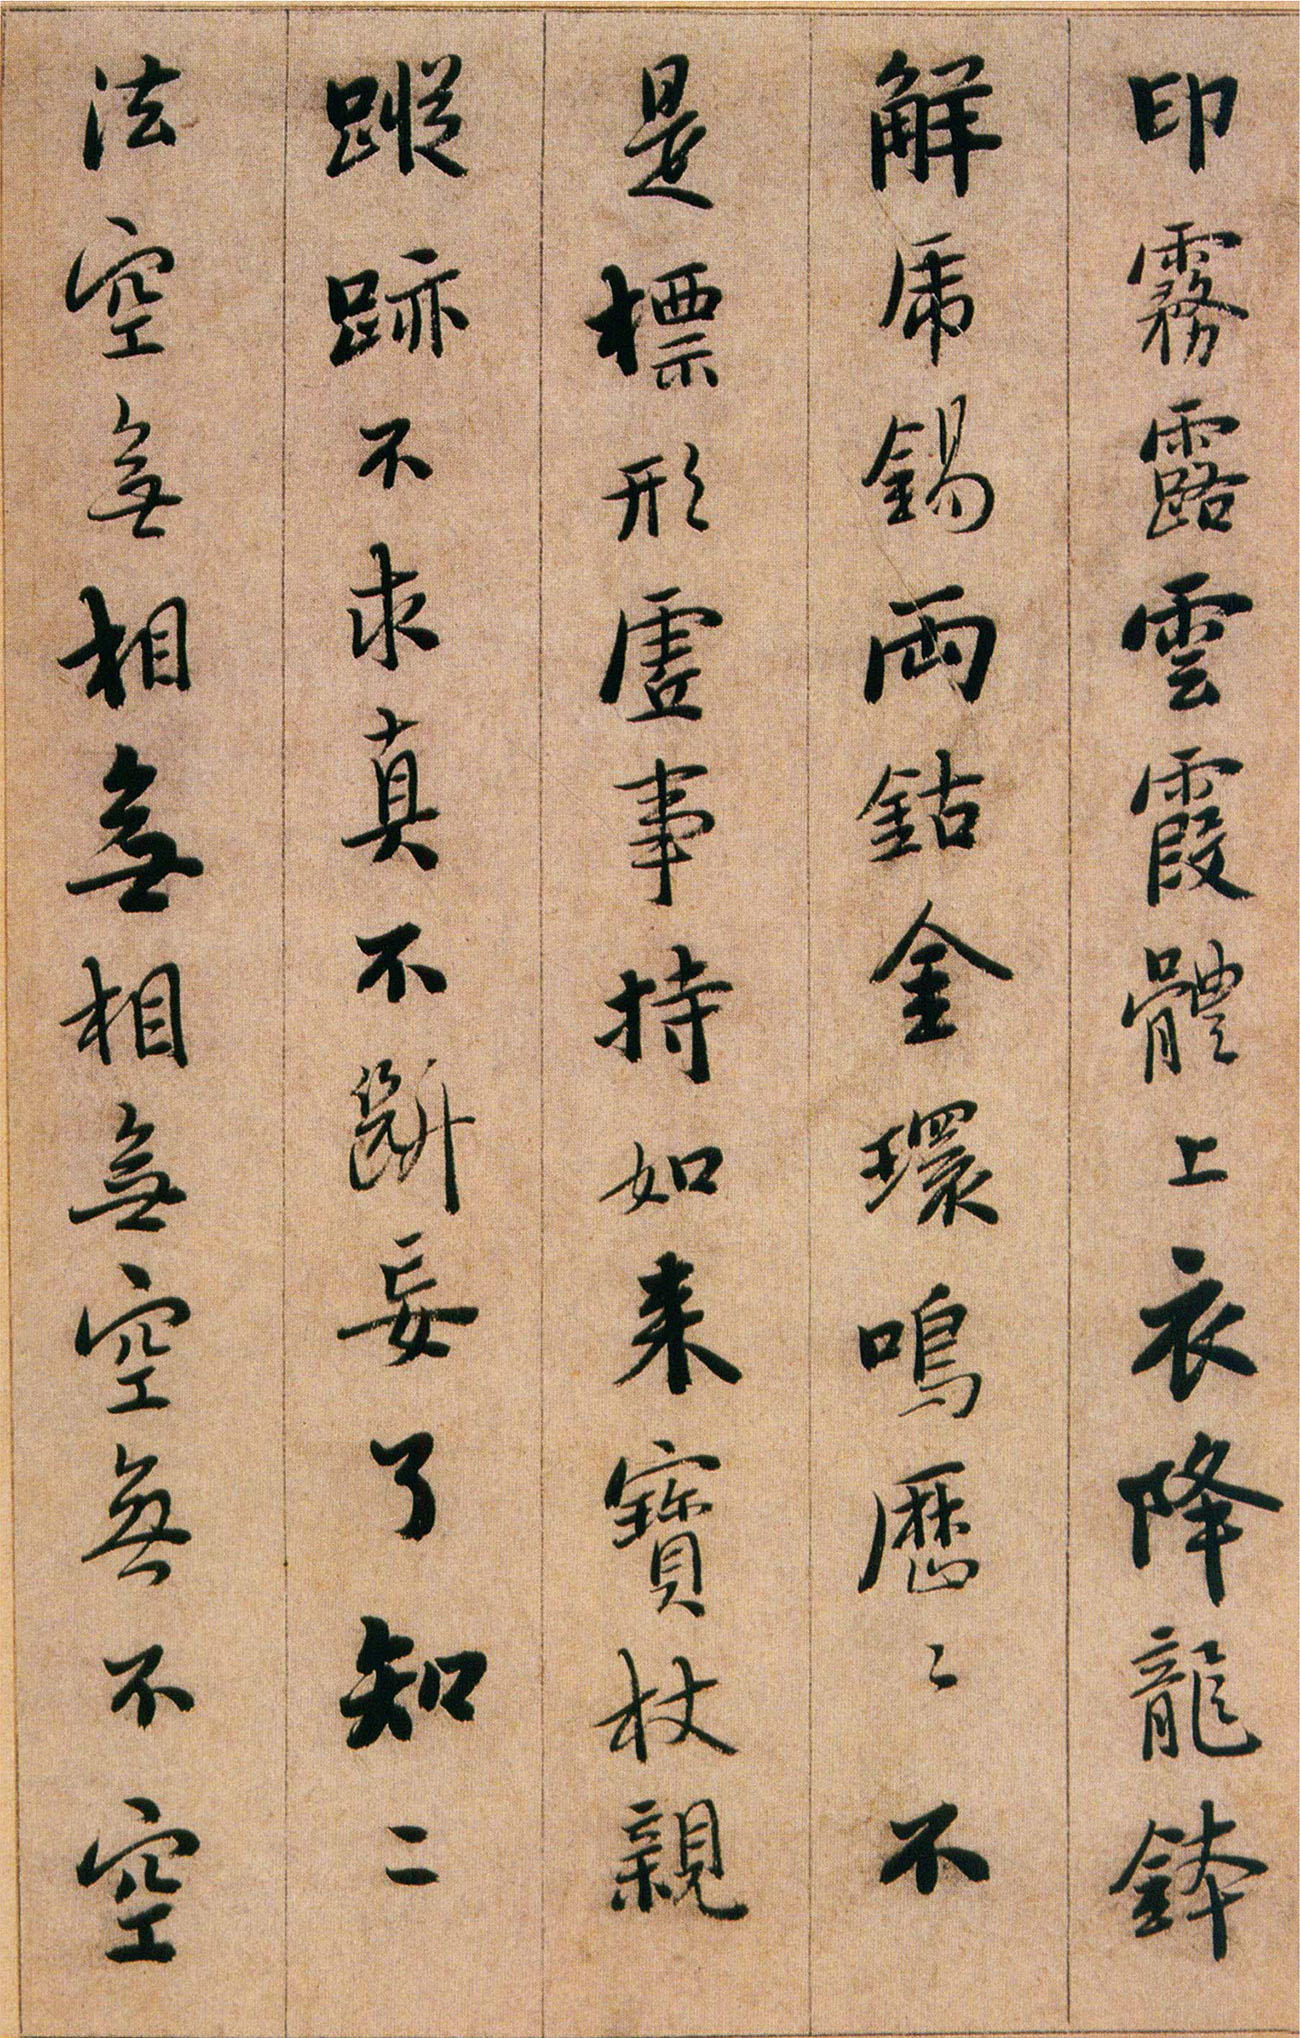 印霧露雲霞體上衣降龍鉢
解虎錫兩鈷金環鳴歷〻不
是標形虛事持如来寶杖親
蹤跡不求真不斷妄了知二
法空無相無相無空無不空